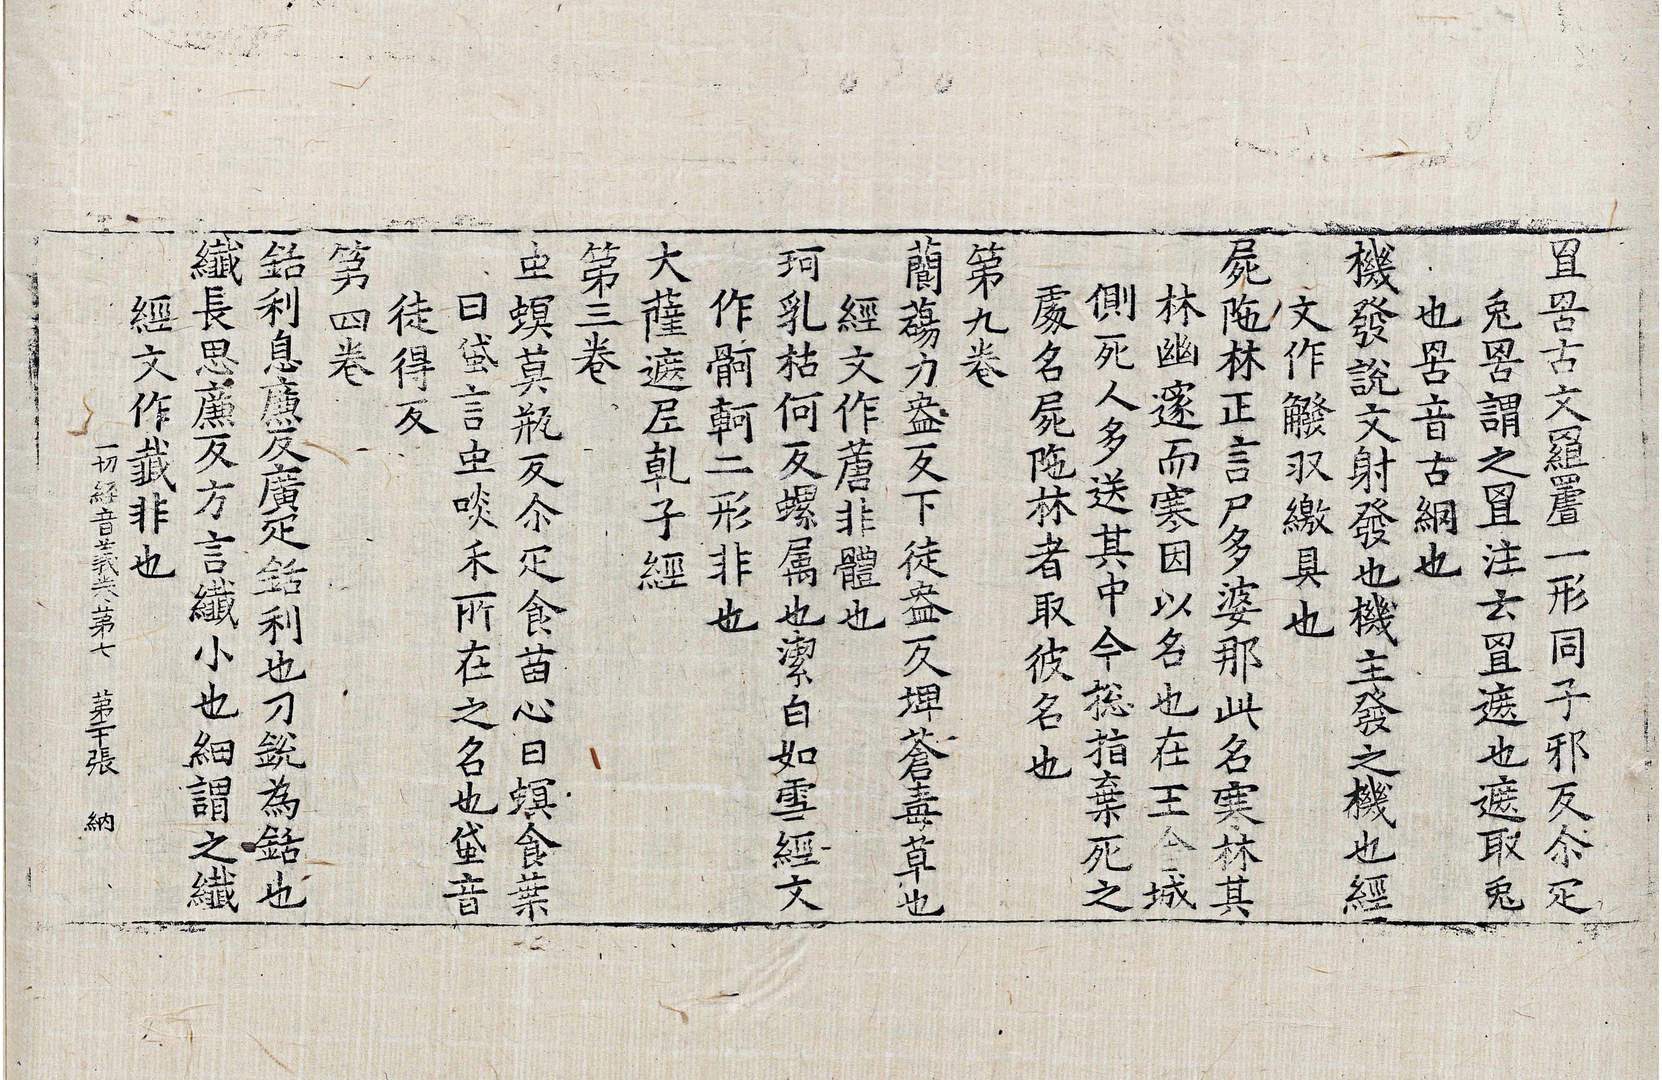 罝罟古文羅罿一形同子邪反尒疋
兎罟謂之罝注云罝遮也遮取兎
也罟音古網也
機發說文射發也機主發之機也經
文作鱍㕛繳具也
屍陁林正言尸多婆那此名寒林其
林幽邃而寒因以名也在王舎城
側死人多送其中今揔指棄死之
處名屍陁林者取彼名也
第九卷
蘭蕩力盎反下徒盎反埤蒼毒草也
經文作藘非體也
珂乳枯何反螺属也潔白如雪經文
作骱軻二形非也
大薩遮尼乹子經
第三卷
䖝螟莫瓶反尒疋食苗心曰螟食葉
曰蟘言䖝啖禾所在之名也蟘音
徒得反
第四卷
銛利息廉反廣疋銛利也刀銳為銛也
纖長思廉反方言纖小也細謂之纖
經文作韱非也
一切經音義卷第七 第干張 納